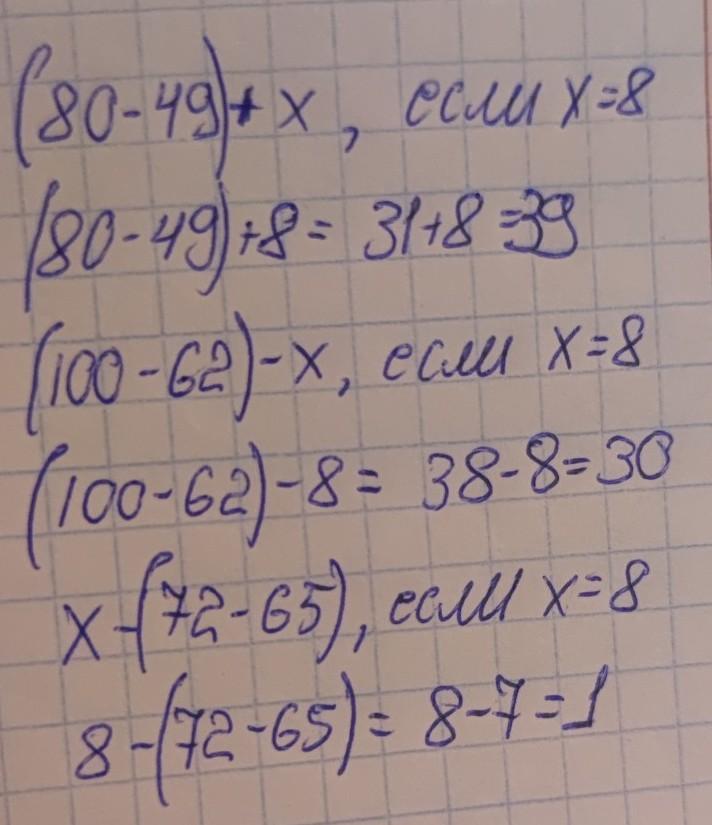 (80-49)+x, если x=8
(80-49)+8= 31+8=39
(100-62)-x, если x=8
(100-62)-8= 38-8=30
x-(72-65), если x=8
8-(72-65)= 8-7=1